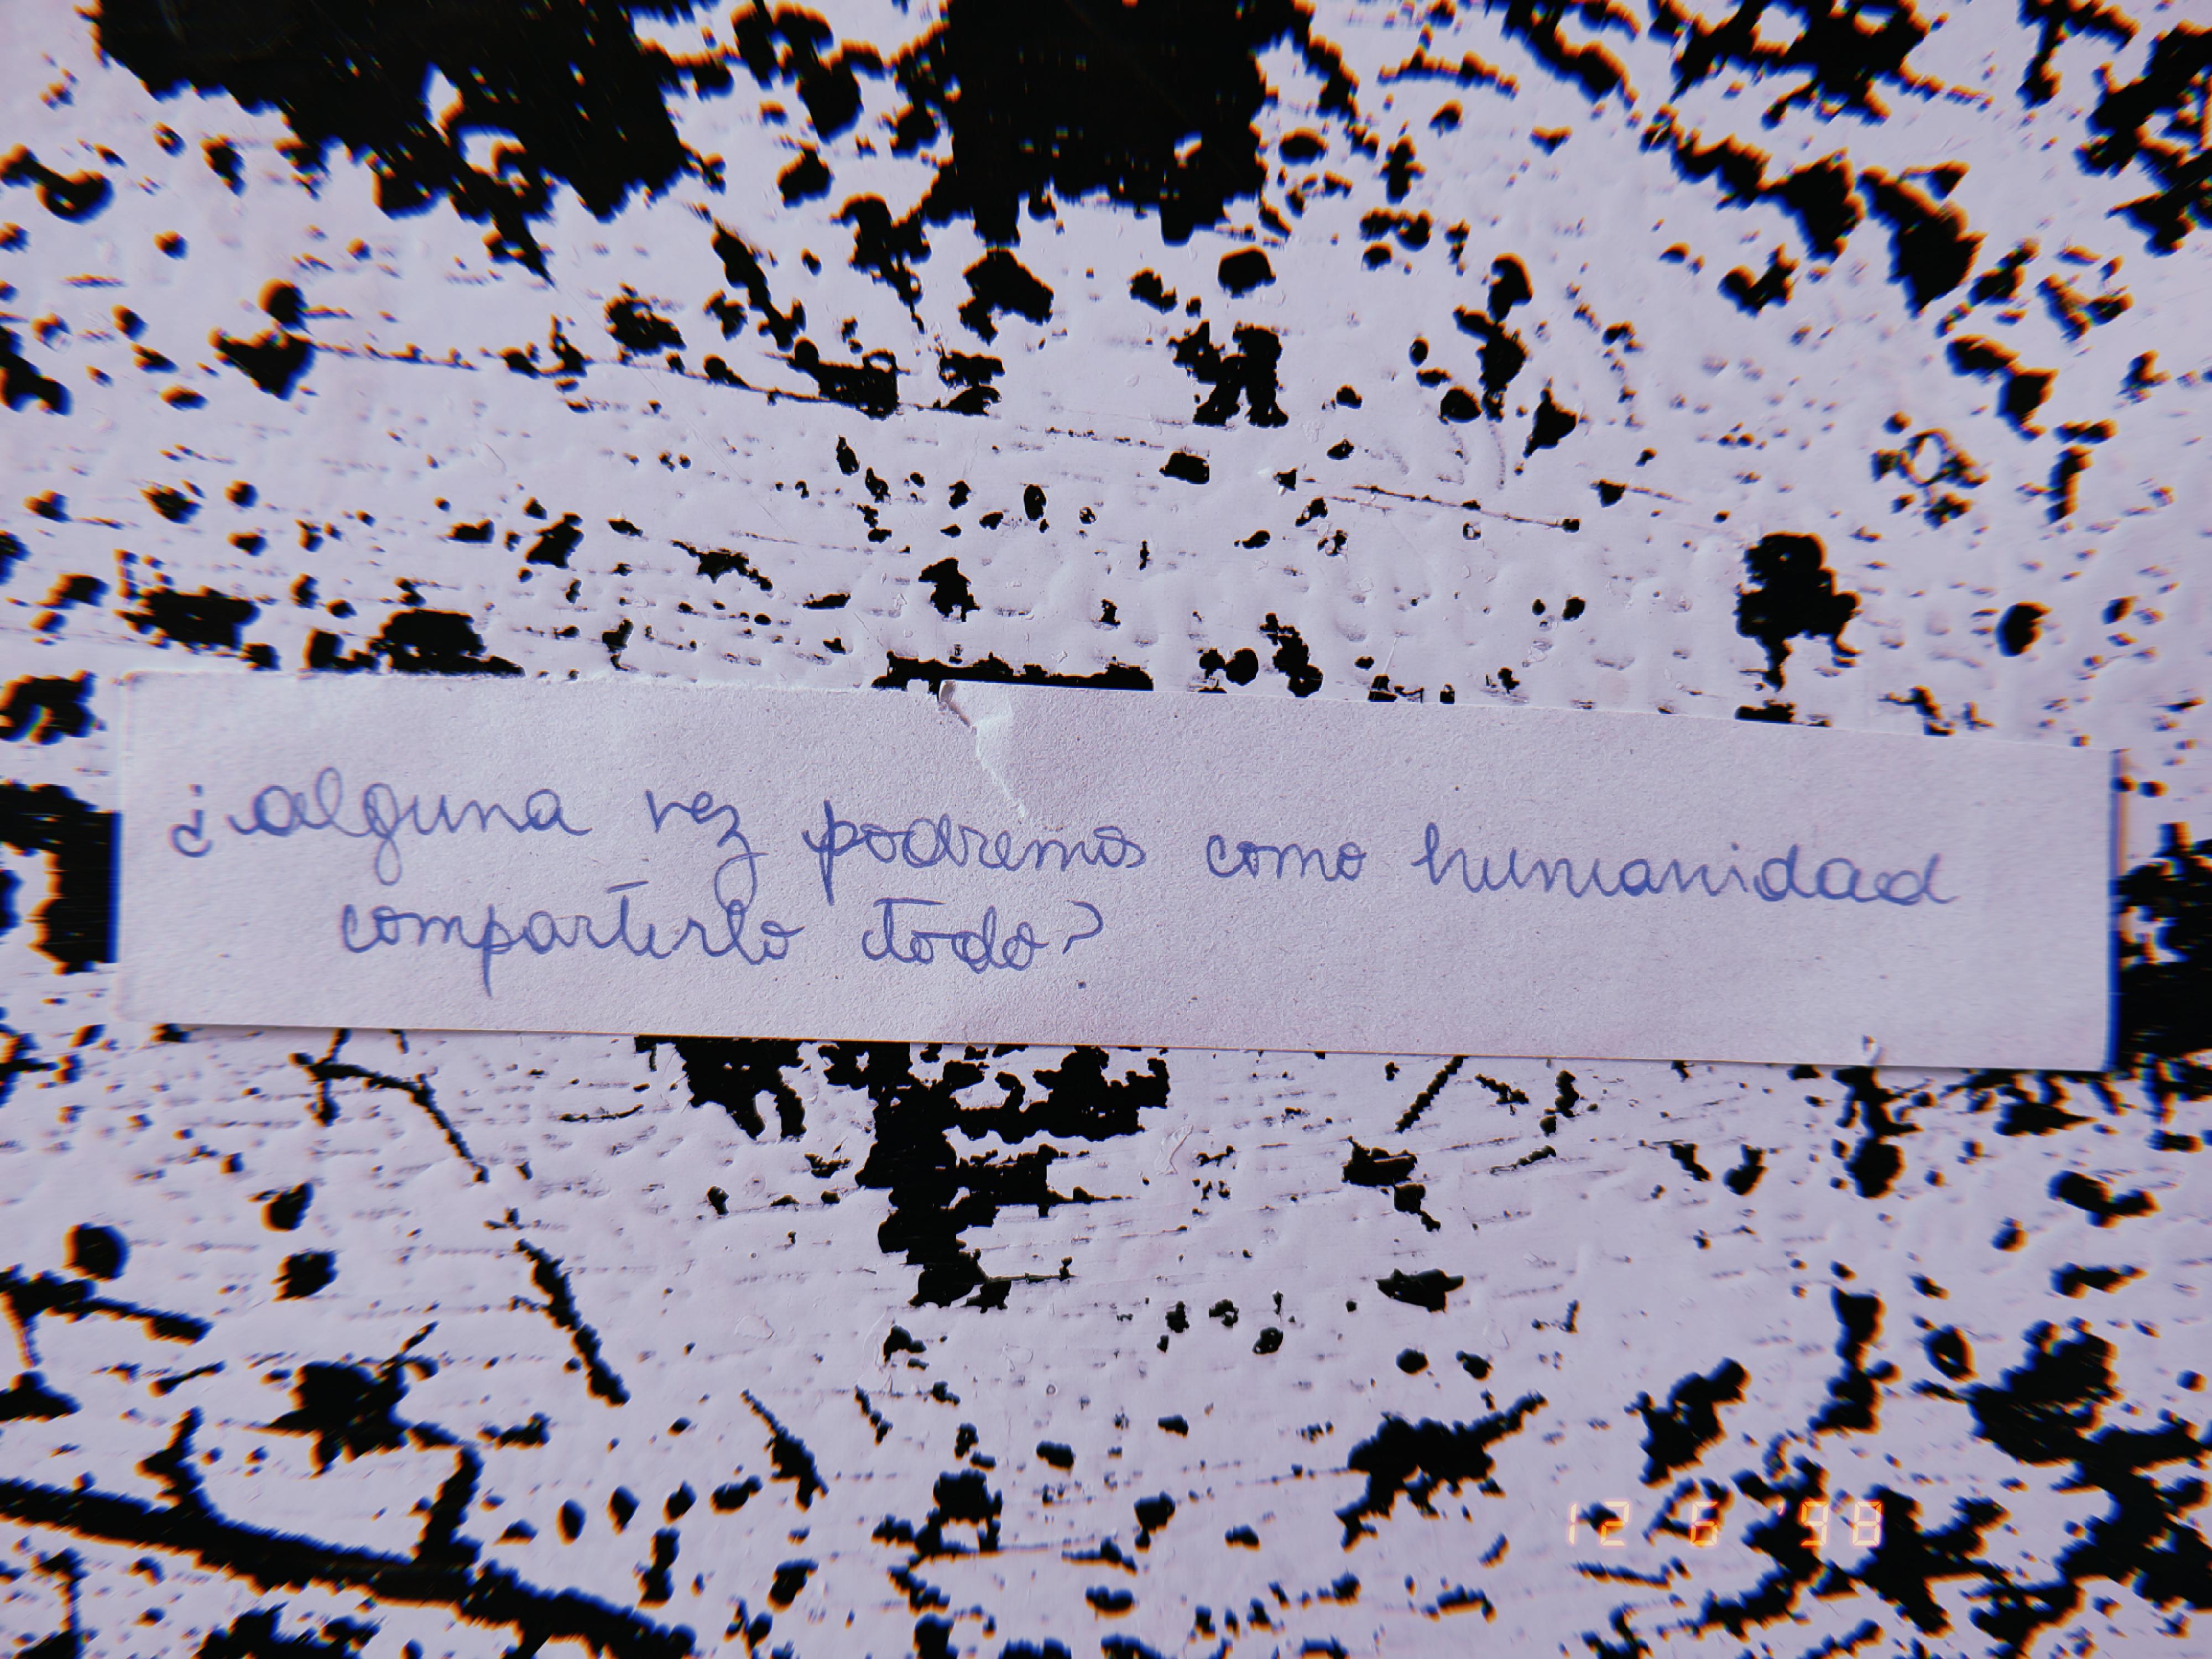 ¿alguna vez podremos como humanidad
compartirlo todo?
12 6 '98